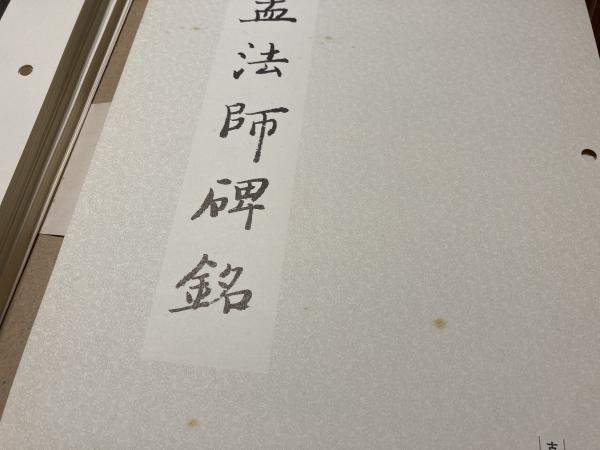 孟法師碑銘
古